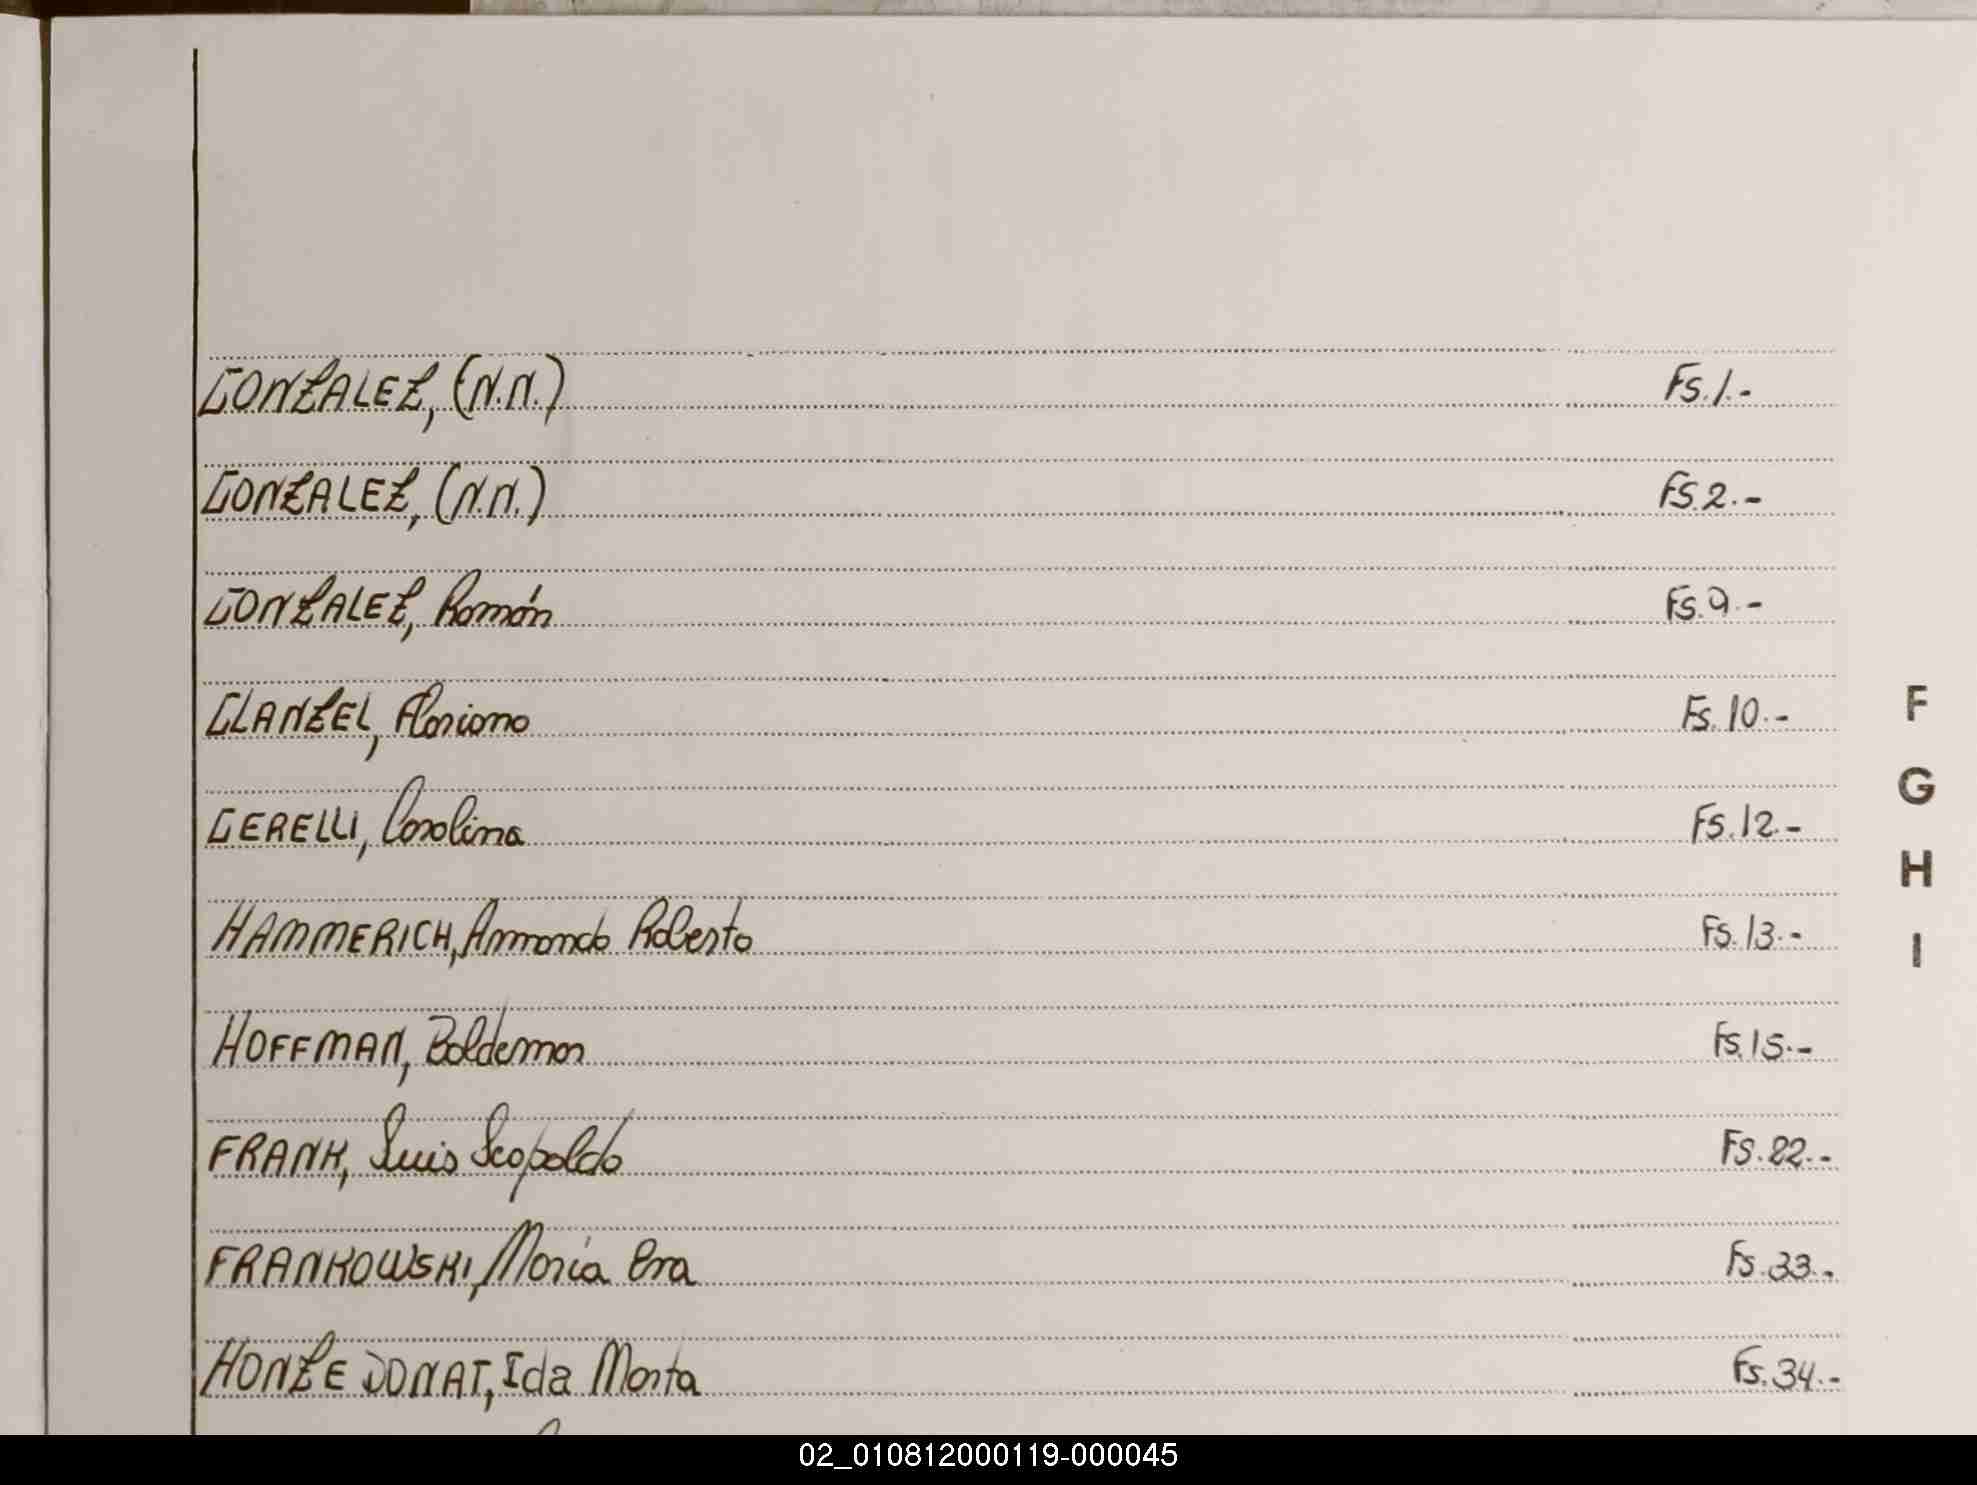 GONZALEZ, (N.N.) Fs.1.-
GONZALEZ, (N.N.) Fs.2.-
GONZALEZ, Román Fs.9.-
GLANZEL, Floriano Fs.10.-
GERELLI, Carolina Fs.12.-
HAMMERICH, Armando Roberto Fs.13.-
HOFFMAN, Boldemar Fs.15.-
FRANK, Luis Leopoldo Fs.22.-
FRANKOWSKI, María Eva Fs.33.-
HONZE DONAT, Ida Marta Fs.34.-
F
G
H
I
02_010812000119-000045